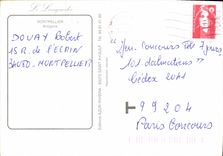 Le Languedoc
MONTPELLIER
DOUAY Robert
15 R. de l'ECRIN
34080 - MONTPELLIER
"Jeu. Concours Télé 7 jours
101 dalmatiens"
Cédex 2041
T 99204
Paris Concours